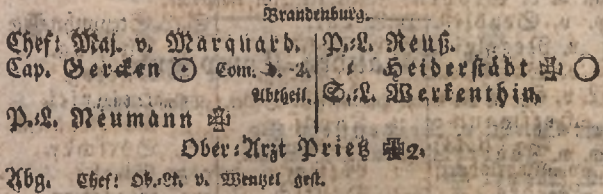 Brandenburg.
Chef: Maj. v. Marquard.
Cap. Gercken ☉ Com. d. 2.
Abtheil.
P.=L. Neumann ✠
P.=L. Reuß.
= Heiderstädt ✠ ○
S.=L. Werkenthin.
Ober=Arzt Prietz ✠2.
Abg. Chef: Ob.=Lt. v. Wentzel gest.